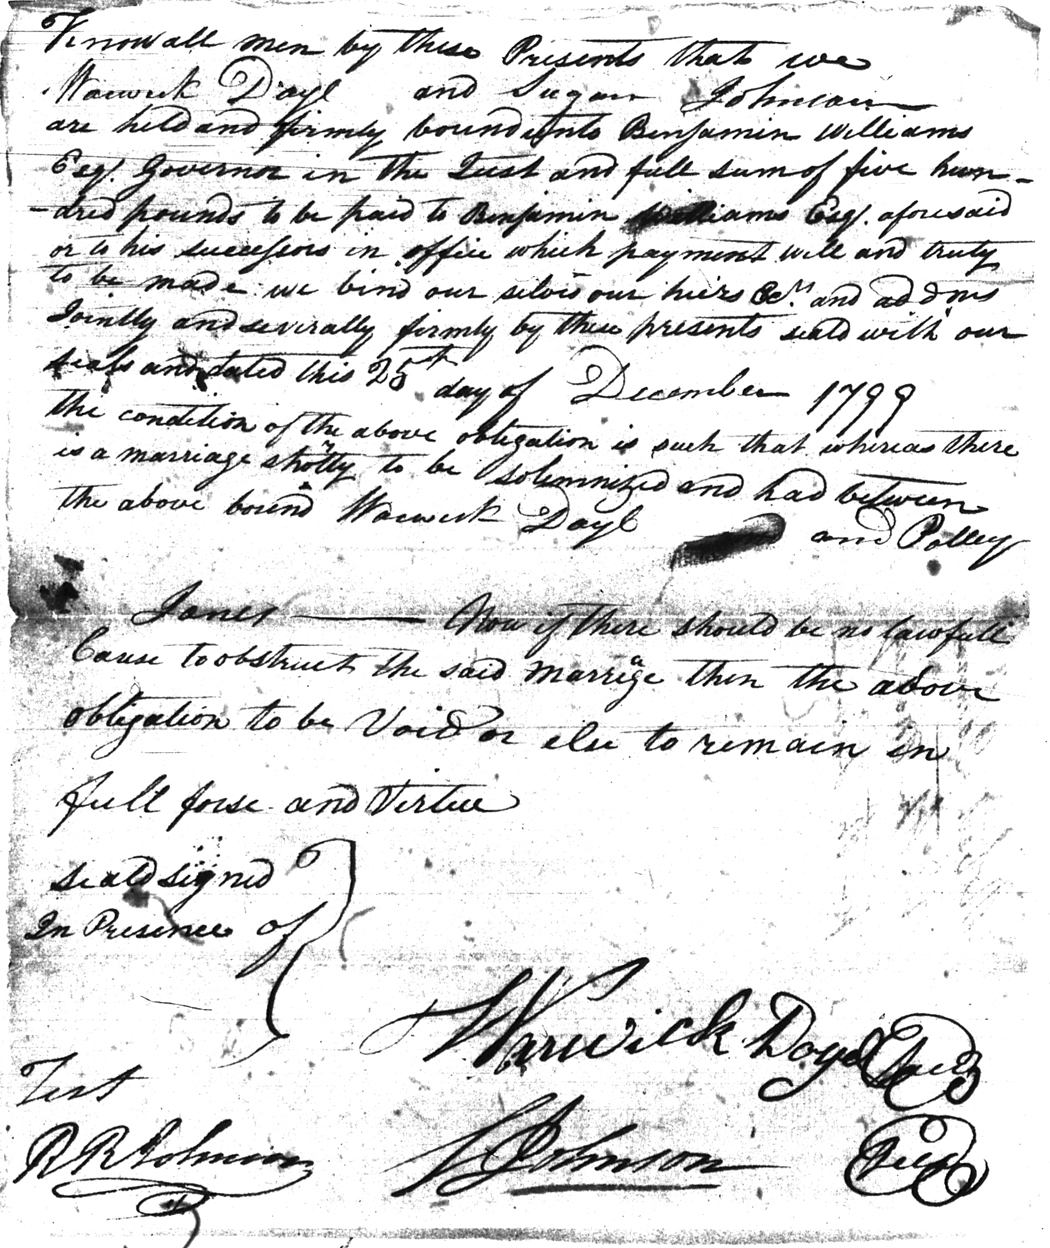 Know all men by these Presents that we
Warwick Doyl and Sugan Johnson
are held and firmly bound unto Benjamin Williams
Esqr. Governor in the Just and full sum of five hun-
-dred pounds to be paid to Benjamin Williams Esqr. aforesaid
or to his successors in office which payment will and truly
to be made we bind our selvs our heirs Ecrs and addms
Jointly and severally firmly by these presents seald with our
seals and dated this 25th day of December 1799
the condition of the above obligation is such that whereas there
is a marriage shortly to be solemnized and had between
the above bound Warwick Doyl and Polley
Jones Now if there should be no lawfull
Cause to obstruct the said Marrige then the above
obligation to be Void or else to remain in
full forse and Virtue
seald signed
In Presence of
Warwick Doyel Seal
Test
R R Johnson
S Johnson Seal